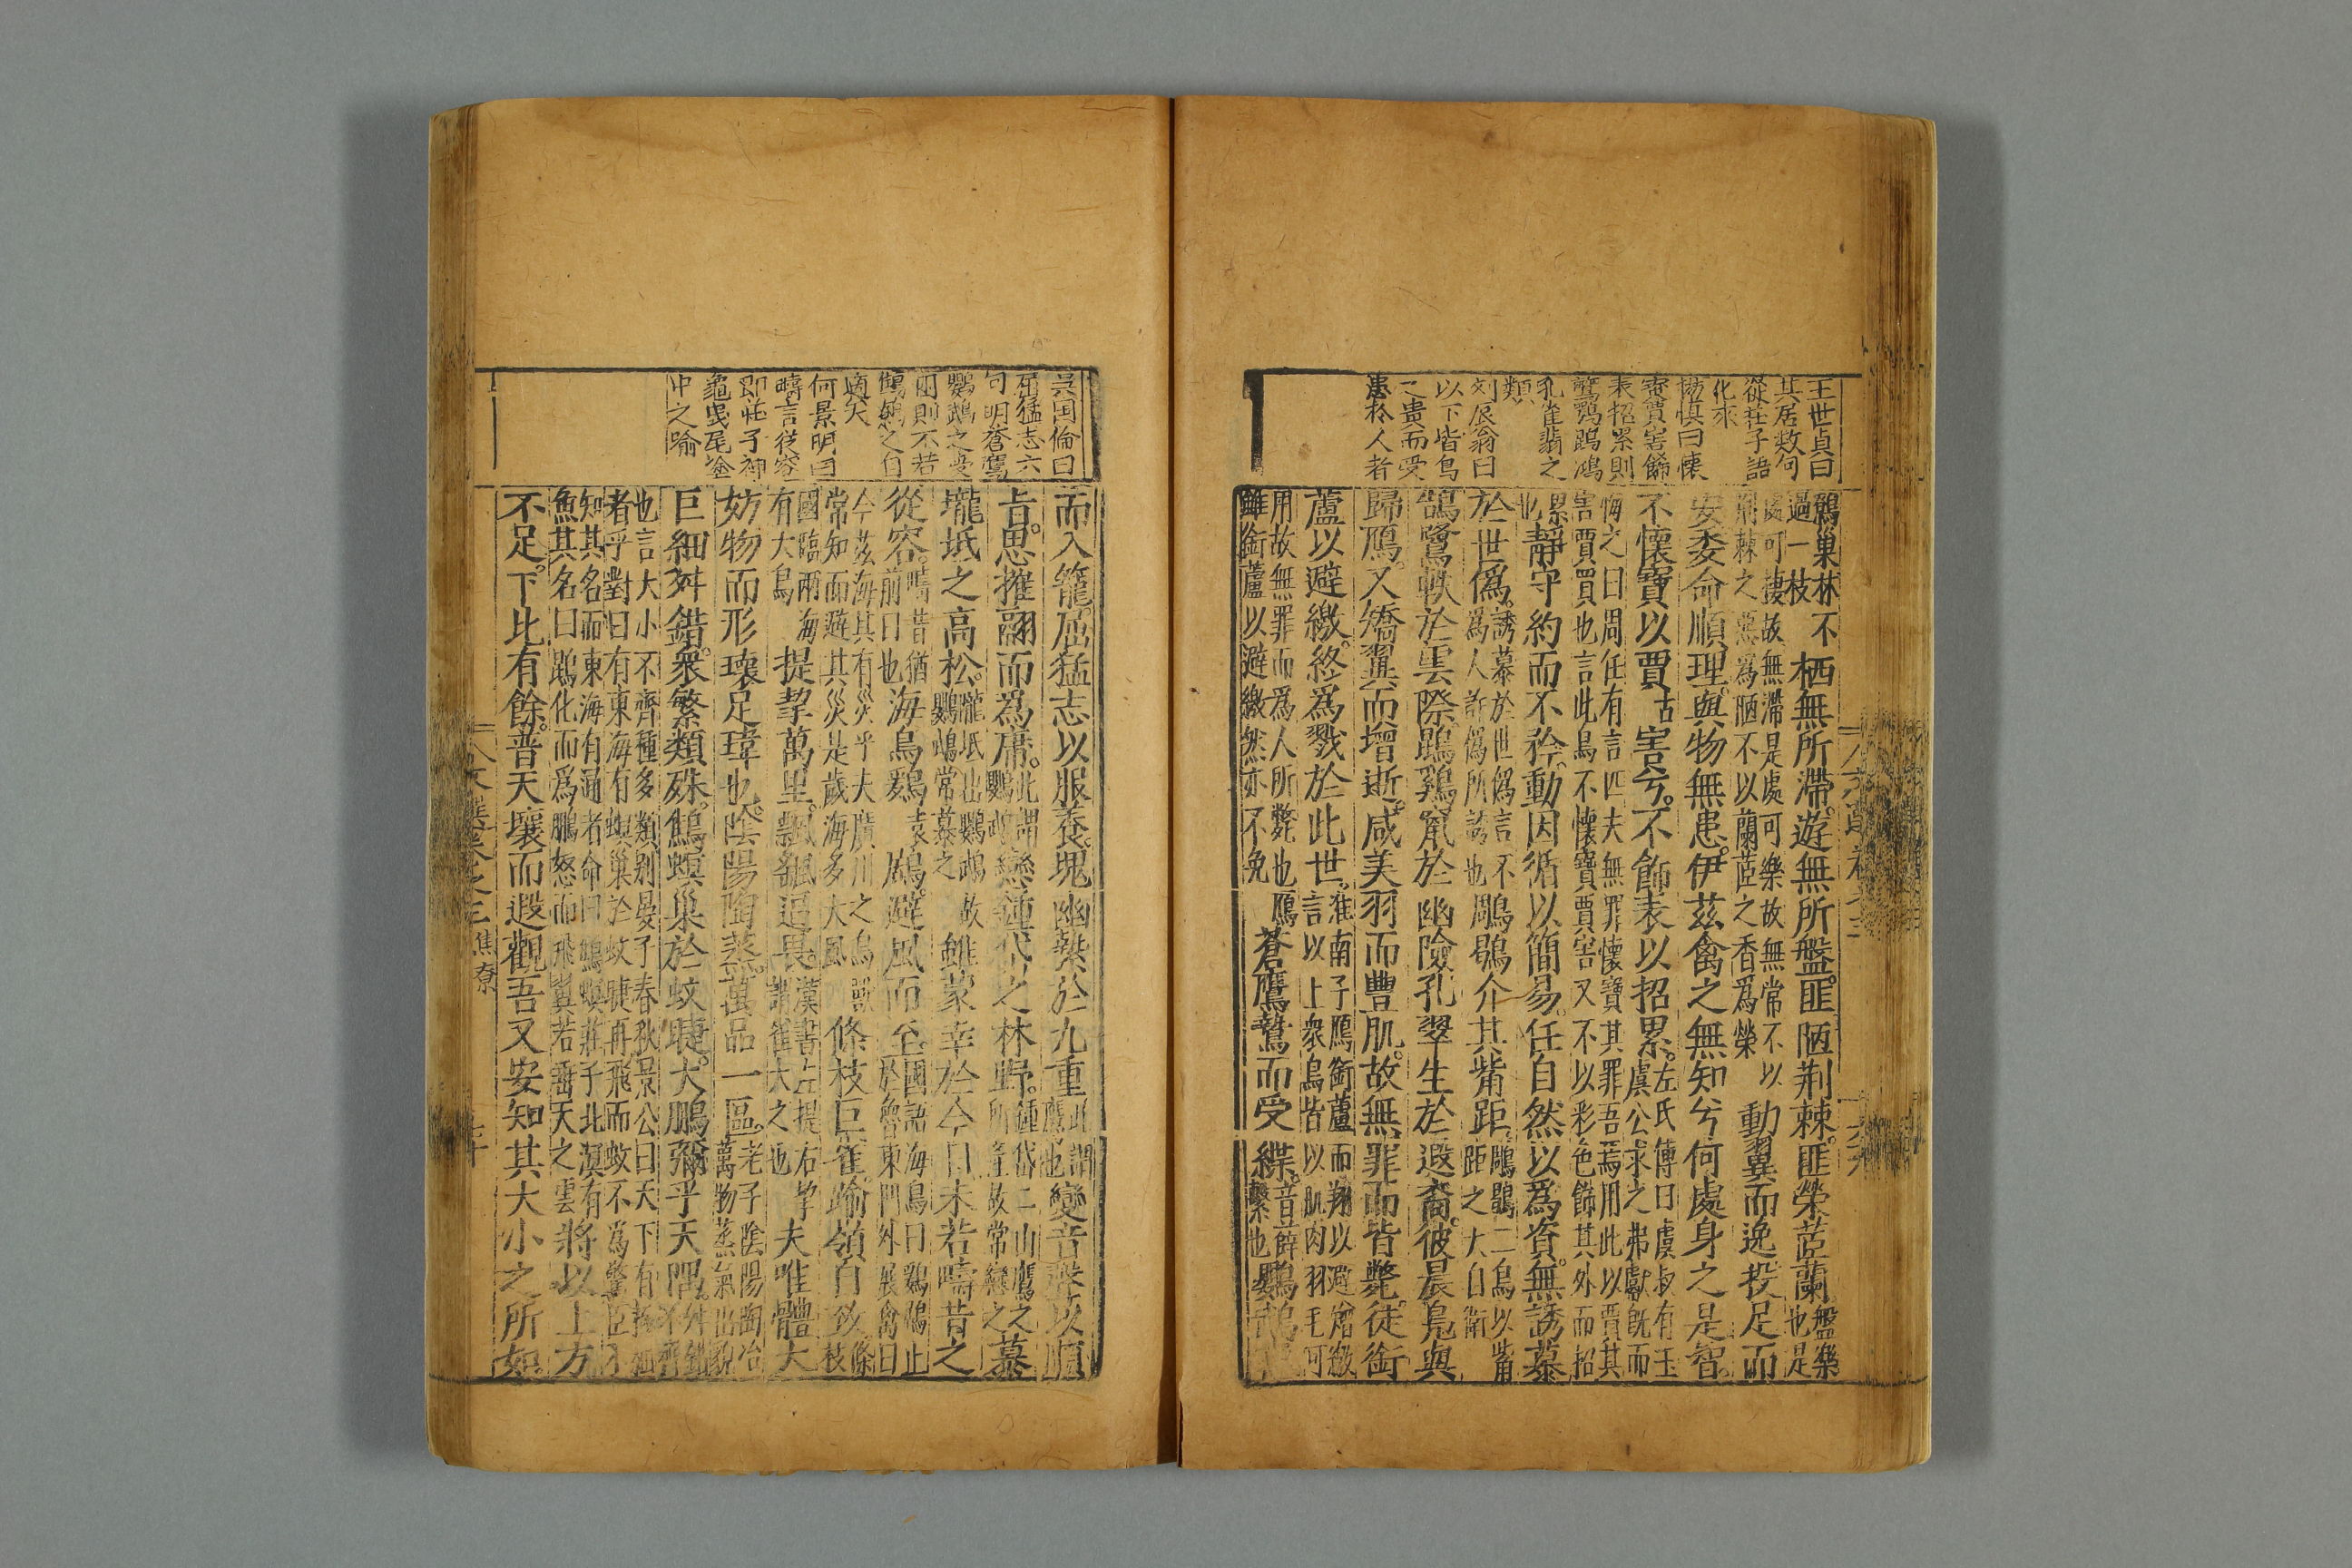 王世貞曰
其居数句
從莊子語
化來
楊慎曰懷
寳賈害飾
表招累則
鷲鶚鵾鴻
孔雀翡之
類
刘辰翁曰
以下皆鳥
之貴而受
患於人者
鷦巢林不
過一枝
栖無所滯。遊無所盤。匪陋荆棘。匪榮茝蘭。
盤樂
也是
處可棲故無滯是處可樂故無常不以
荆棘之惡為陋不以蘭茝之香爲榮
動翼而逸投足而
安委命順理。與物無患。伊茲禽之無知兮何處身之是智。
不懷寶以賈
古
害兮。不飾表以招累。
左氏傳曰虞叔有玉
虞公求之弗獻旣而
悔之曰周任有言匹夫無罪懷寶其罪吾焉用此以賈其
害賈買也言此鳥不懷寶賈害又不以彩色飾其外而招
累
也
靜守約而不矜。動因循以簡易。任自然以爲資。無誘慕
於世僞。
誘慕於世僞言不
爲人詐僞所誘也
鵰鶡介其觜距
鵰鶡二鳥以觜
距之大自衛
鵠鷺軼於雲際。鵾鷄竄於幽險孔翠生於遐裔。彼晨鳬與
歸鴈。又矯翼而增逝。咸美羽而豐肌。故無罪而皆斃。徒銜
蘆以避繳。終爲戮於此世。
淮南子鴈銜蘆而翔以避矰繳
言以上衆鳥皆以肌肉羽毛可
用故無罪而爲人所斃也鴈
雖銜蘆以避繳然亦不免
蒼鷹鷙而受緤。
音薛
繫也
鸚鵡
吳国倫曰
屈猛志六
句明蒼鷹
鸚鵡之受
困則不若
鷦鷯之自
適矣
何景明曰
疇言從容
即莊子神
龜曳尾塗
中之喻
而入籠。屈猛志以服養。塊幽縶於九重
此謂
鷹也
變音聲以順
㫖。思摧翮而爲庸。
此謂
鸚鵡
戀鍾代之林野。
鍾岱二山鷹之
所產故常戀之
慕
壠坻之高松。
隴坻出鸚鵡故
鸚鵡常慕之
雖蒙幸於今日未若疇昔之
從容。
疇昔猶
前日也
海鳥鷄
袁
鶋。避風而至
國語海鳥曰鷄鶋止
於魯東門外展禽曰
今茲海其有災乎夫廣川之鳥獸
常知而避其災是歲海多大風
條枝巨雀。踰嶺自致
條
枝
國臨兩海
有大鳥
提挈萬里。飄颻逼畏
漢書左提右挈
謂雀大之也
夫唯體大
妨物而形瓌足瑋也。陰陽陶蒸。萬品一區
老子陰陽陶冶
萬物蒸氣出貌
巨細舛錯。衆繁類殊。鷦螟巢於蚊睫。大鵬彌乎天隅。
舛錯
不齊
也言大小不齊種多類别晏子春秋景公曰天下有極細
者乎對曰有東海有螟巢於蚊睫再飛而蚊不爲驚臣不
知其名而東海有通者命曰鷦螟莊子北溟有
魚其名曰鵾化而爲鵬怒而飛翼若垂天之雲
將以上方
不足。下比有餘。普天壤而遐觀吾又安知其大小之所如。
文選卷之三
焦鷯